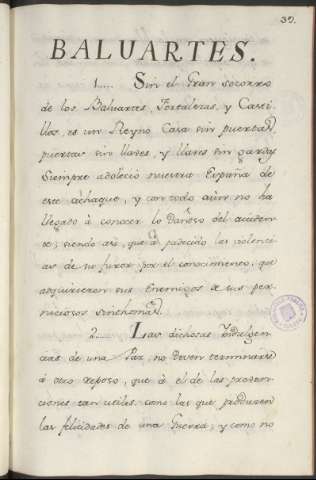 39.
BALUARTES.
1.... Sin el Gran socorro
de los Baluartes, Fortalezas, y Casti-
llos, es un Reyno Casa sin puertas,
puertas sin llaves, y llaves sin guardas
Siempre adoleció nuestra España de
este achaque, y con todo aún no ha
llegado á conocer lo dañoso del acciden-
te; siendo así, que á padecido las violenci-
as de su furor por el conocimiento, que
adquirieron sus Enemigos de sus per-
niciosos sinthomas.
2.... Las dichosas yndulgen-
cias de una Paz, no deven terminarse
á otro reposo, que á el de las preven-
ciones tan utiles como las que producen
las felicidades de una Guerra; y como no